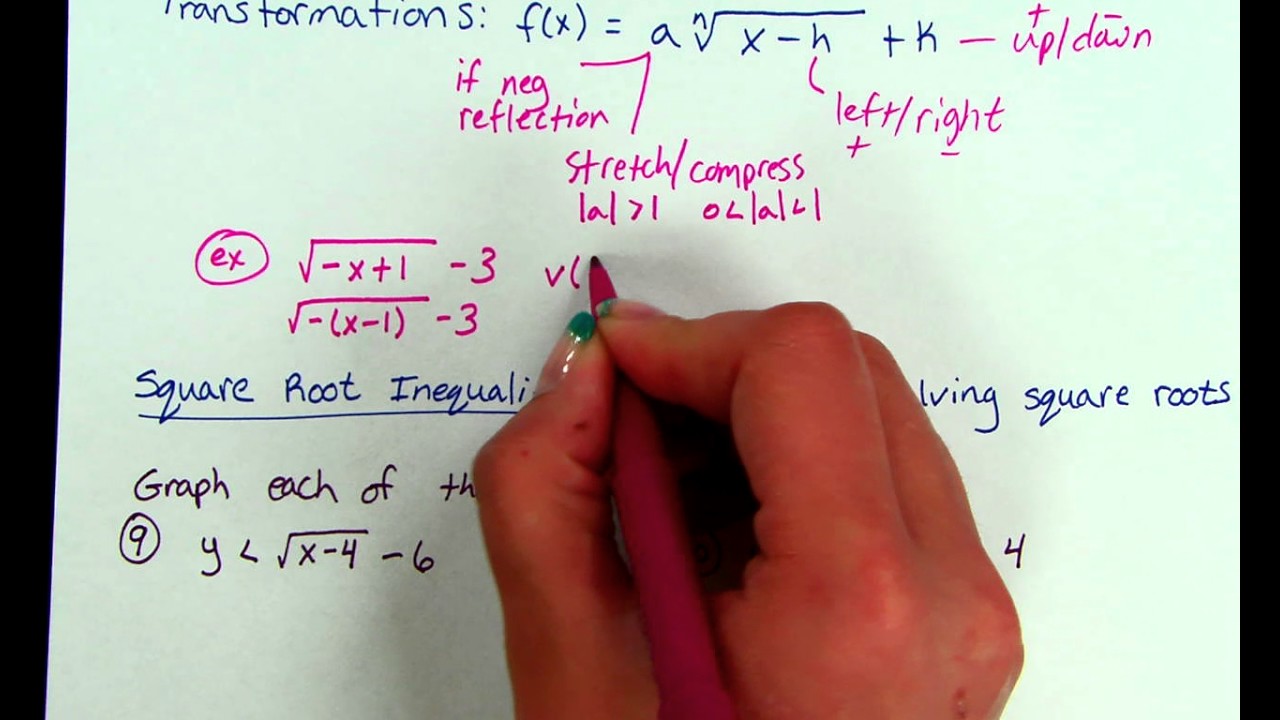 Transformations: f(x) = a ⁿ√(x-h) + k — up/down
+ -
if neg
reflection
left/right
+ -
stretch/compress
|a| > 1 0 < |a| < 1
ex √(-x+1) -3 v(
√(-(x-1)) -3
Square Root square roots
Graph each of
9 y < √(x-4) - 6 4